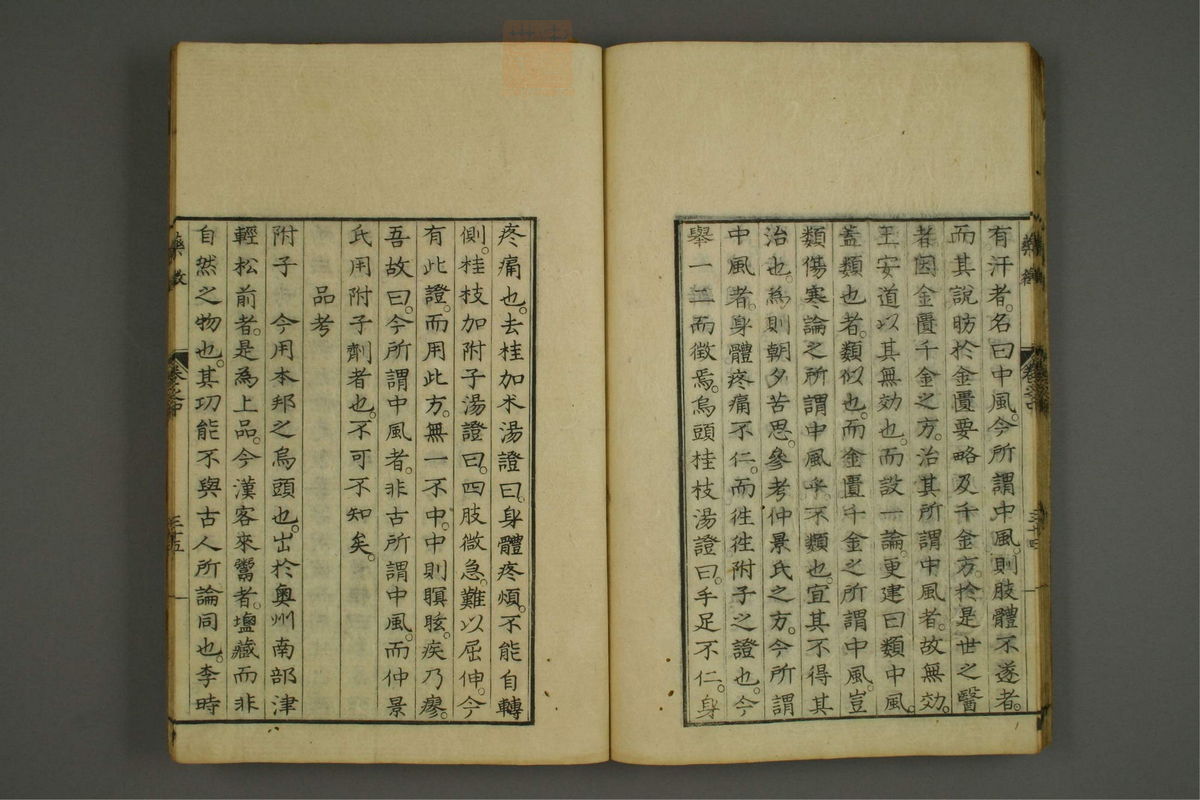 有汗者。名曰中風。今所謂中風。則肢體不遂者。
而其說昉於金匱要略及千金方。於是世之醫
者因金匱千金之方。治其所謂中風者。故無効。
王安道以其無効也。而設一論。更建曰類中風。
蓋類也者。類似也。而金匱千金之所謂中風。豈
類傷寒論之所謂中風乎。不類也。宜其不得其
治也。爲則朝夕苦思。參考仲景氏之方。今所謂
中風者。身體疼痛不仁。而徃徃附子之證也。今
舉一二而徵焉。烏頭桂枝湯證曰。手足不仁。身
藥徵
卷之中
三十四
疼痛也。去桂加朮湯證曰。身體疼煩。不能自轉
側。桂枝加附子湯證曰。四肢微急。難以屈伸。今
有此證。而用此方。無一不中。中則瞑眩。疾乃瘳。
吾故曰。今所謂中風者。非古所謂中風。而仲景
氏用附子劑者也。不可不知矣。
品考
附子 今用本邦之烏頭也。出於奧州南部津
輕松前者。是爲上品。今漢客來鬻者。鹽藏而非
自然之物也。其功能不與古人所論同也。李時
藥徵
卷之中
三十五